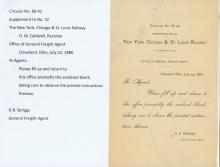 Circular No. 86-42
Supplement to No. 32
The New York, Chicago & St. Louis Railway
O. W. Caldwell, Receiver
Office of General Freight Agent
Cleveland, Ohio, July 22, 1886
To Agents.
Please fill up and return to
this office promptly the enclosed blank,
taking care to observe the pointed instructions
thereon.
G.B. Spriggs
General Freight Agent
Circular No. 86-42
Supplement to No. 32
New York, Chicago & St. Louis Railway
Office of General Freight Agent
Cleveland, Ohio, July 22, 1886
To Agents:
Please fill up and return to
this office promptly the enclosed blank,
taking care to observe the printed instructions
thereon.
G. B. Spriggs